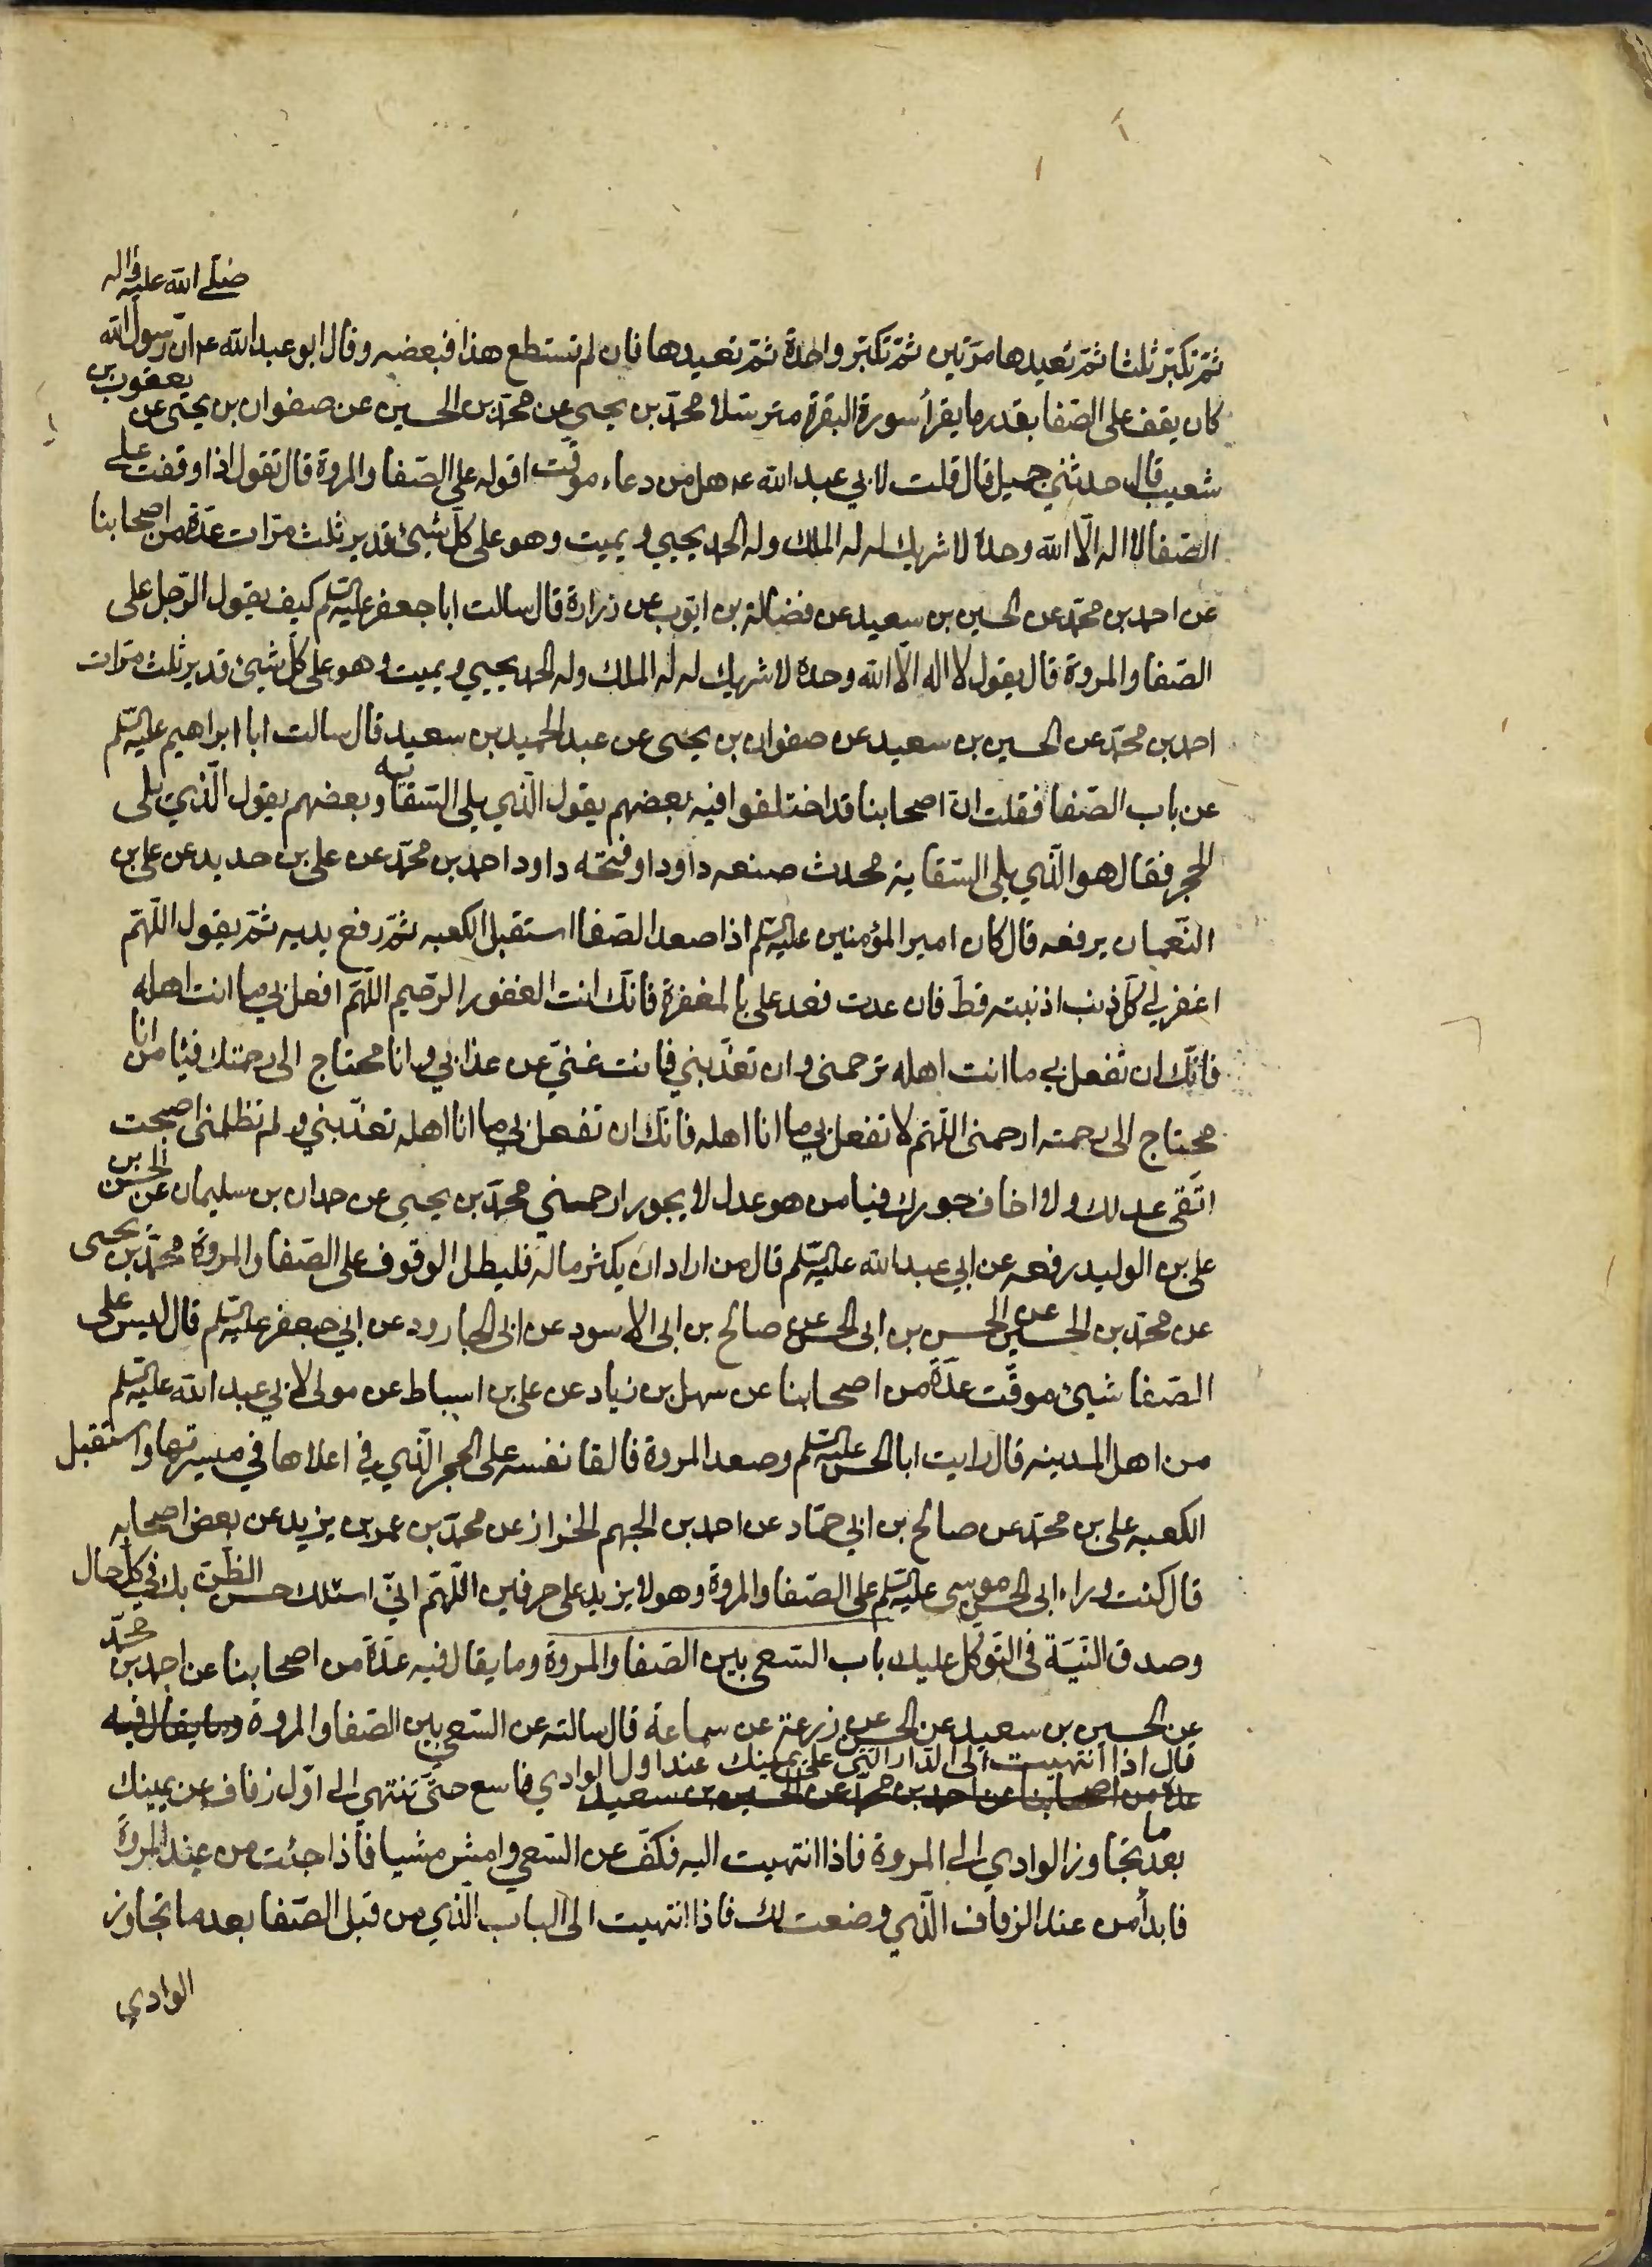 صلى الله عليه واله
ثمّ تكبّر ثلثا ثمّ تعيدها مرّتين ثمّ تكبّر واحدة ثمّ تعيدها فان لم تستطع هذا فبعضه وقال ابو عبد الله ع ان رسول الله
كان يقف على الصّفا بقدر ما يقرأ سورة البقرة مترسّلا محمّد بن يحيى عن محمّد بن الحسين عن صفوان بن يحيى عن يعقوب بن
شعيب قال حدثني جميل قال قلت لابي عبد الله ع هل من دعاء موقّت اقوله على الصّفا والمروة قال تقول اذا وقفت على
الصّفا لا اله الّا الله وحده لا شريك له له الملك وله الحمد يحيي ويميت وهو على كلّ شيئ قدير ثلث مرّات عدّة من اصحابنا
عن احمد بن محمّد عن الحسين بن سعيد عن فضالة بن ايّوب عن زرارة قال سالت ابا جعفر عليه السّلم كيف يقول الرّجل على
الصّفا والمروة قال يقول لا اله الّا الله وحده لا شريك له له الملك وله الحمد يحيي ويميت وهو على كلّ شيئ قدير ثلث مرّات
احمد بن محمّد عن الحسين بن سعيد عن صفوان بن يحيى عن عبد الحميد بن سعيد قال سالت ابا ابراهيم عليه السّلم
عن باب الصّفا فقلت انّ اصحابنا قد اختلفوا فيه بعضهم يقول الّذي يلي السّقايه وبعضهم يقول الّذي يلى
الحجر فقال هو الّذي يلى السّقاية محدث صنعه داود او فتحه داود احمد بن محمّد عن على بن حديد عن على بن
النّعمان يرفعه قال كان امير المؤمنين عليه السّلم اذا صعد الصّفا استقبل الكعبه ثمّ رفع يديه ثمّ يقول اللّهمّ
اغفر لي كلّ ذنب اذنبته قطّ فان عدت فعد على بالمغفرة فانّك انت الغفور الرّحيم اللّهمّ افعل بي ما انت اهله
فانّك ان تفعل بي ما انت اهله ترحمنى وان تعذّبني فانت غنيّ عن عذابي وانا محتاج الى رحمتك فيا من انا
محتاج الى رحمته ارحمنى اللّهمّ لا تفعل بي ما انا اهله فانّك ان تفعل بي ما انا اهله تعذّبني ولم تظلمنى اصبحت
اتّقى عدلك ولا اخاف جورك فيا من هو عدل لا يجور ارحمني محمّد بن يحيى عن حمدان بن سليمان عن الحسن بن
على بن الوليد رفعه عن ابي عبد الله عليه السّلم قال من اراد ان يكثر ماله فليطل الوقوف على الصّفا والمروة محمّد بن يحيى
عن محمّد بن الحسين عن الحسن بن ابى الحسن عن صالح بن ابى الاسود عن ابى الجارود عن ابي جعفر عليه السّلم قال ليس على
الصّفا شيئ موقّت عدّة من اصحابنا عن سهل بن زياد عن على بن اسباط عن مولى لابي عبد الله عليه السّلم
من اهل المدينه قال رايت ابا الحسن عليه السّلم وصعد المروة فالقا نفسه على الحجر الّذي في اعلاها في ميسرتها واستقبل
الكعبه على بن محمّد عن صالح بن ابي حمّاد عن احمد بن الجهم الخزاز عن محمّد بن عمر بن يزيد عن بعض اصحابه
قال كنت وراء ابى الحسن موسى عليه السّلم على الصّفا والمروة وهو لا يزيد على حرفين اللّهمّ انّي اسئلك حسن الظّنّ بك في كلّ حال
وصدق النّيّة فى التّوكّل عليك باب السّعى بين الصّفا والمروة وما يقال فيه عدّة من اصحابنا عن احمد بن محمّد
عن الحسين بن سعيد عن الحسن عن زرعة عن سماعة قال سالته عن السّعي بين الصّفا والمروة وما يقال فيه
قال اذا انتهيت الى الدّار الّتي على يمينك عند اول الوادي فاسع حتّى تنتهى الى اوّل زقاف عن يمينك
عدّة من اصحابنا عن احمد بن محمّد عن الحسين بن سعيد
بعد ما تجاوز الوادي الى المروة فاذا انتهيت اليه فكفّ عن السّعي وامش مشيا فاذا جئت من عند المروة
فابدأ من عند الزقاف الّذي وضعت لك فاذا انتهيت الى الباب الّذي من قبل الصّفا بعد ما تجاوز
الوادي